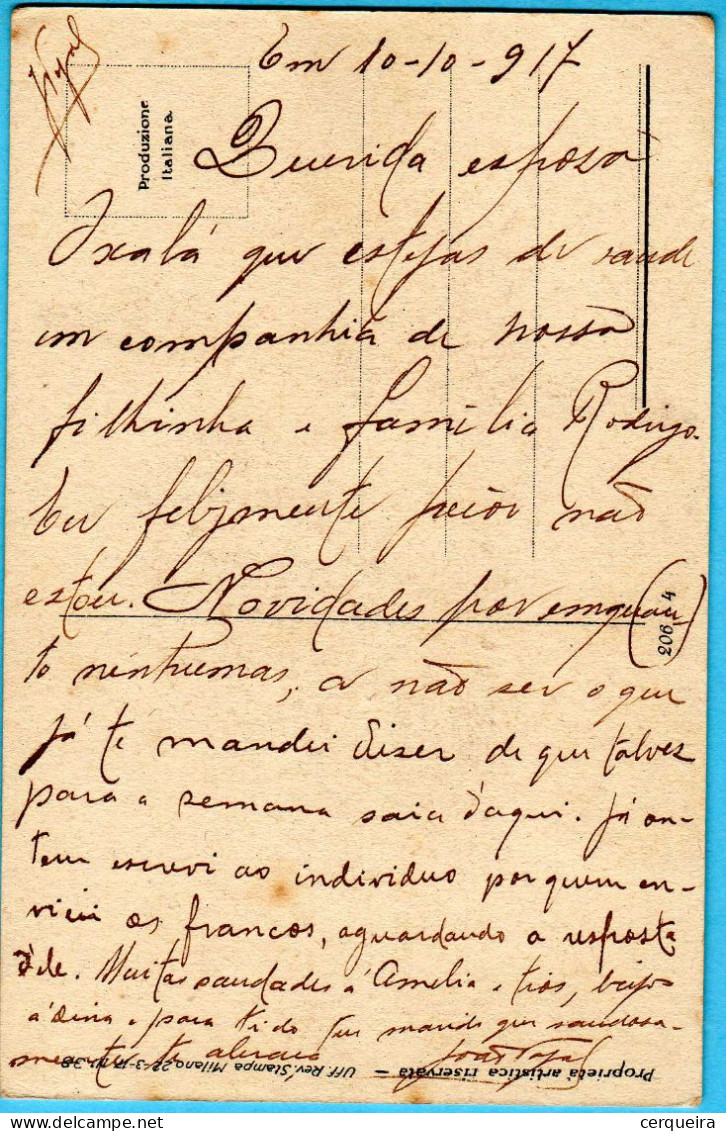 Em 10-10-917
Produzione
Italiana.
Querida esposa
Oxalá que estejas de saude
em companhia de nossa
filhinha e família Rodrigo.
Eu felizmente peior não
estou. Novidades por emquan-
to nenhumas, a não ser o que
já te mandei diser de que talvez
para a semana saia d'aqui. Já on-
tem escrevi ao individuo por quem en-
viei os francos, aguardando a resposta
dele. Muitas saudades á Amelia e tios, beijos
a e para ti do teu marido que saudosa-
mente te abraça João
206 4
Proprietà artistica riservata — Uff. Rev. Stampa Milano 22-3-17
cerqueira